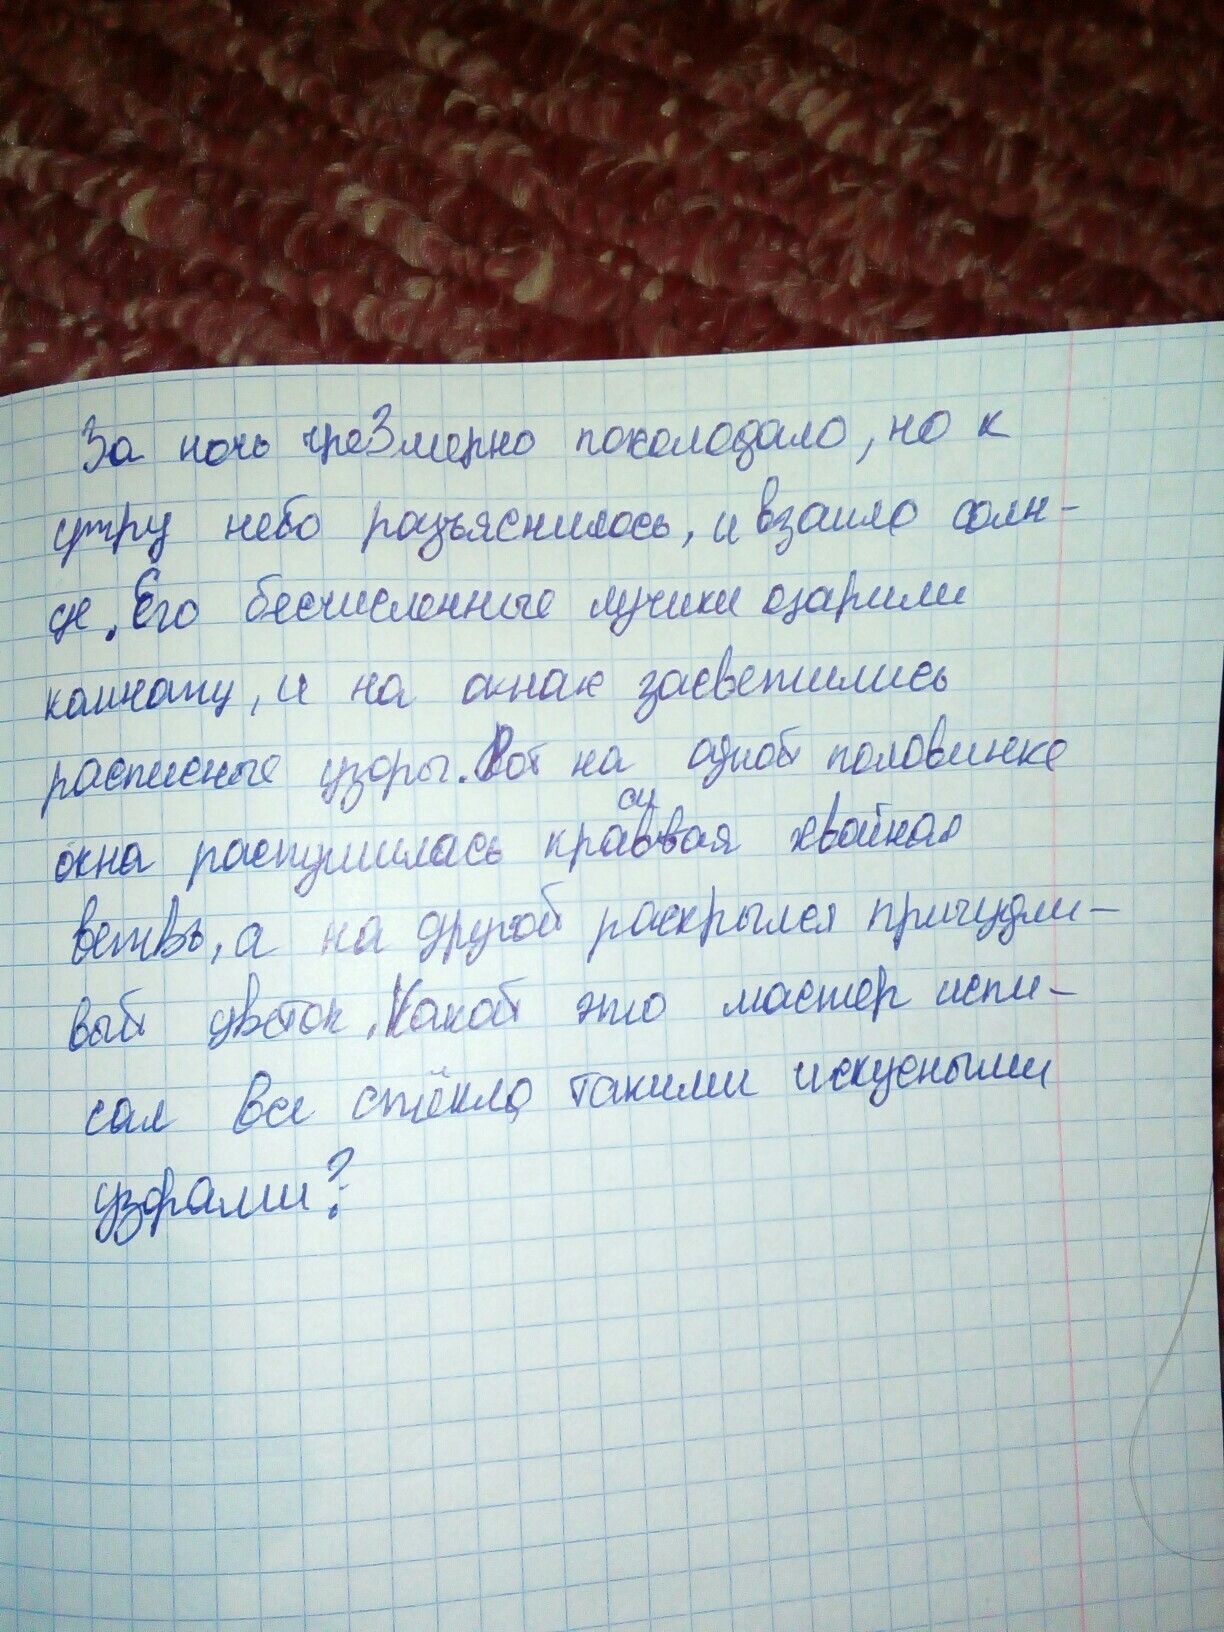 За ночь чрезмерно похолодало, но к
утру небо разъяснилось, и взошло солн-
це. Его бесчисленные лучики озарили
комнату, и на окнах засветились
расписные узоры. Вот на одной половинке
окна распушилась красивая хвойная
ветвь, а на другой раскрылся причудли-
вый цветок. Какой это мастер испи-
сал все стёкла такими искусными
узорами?